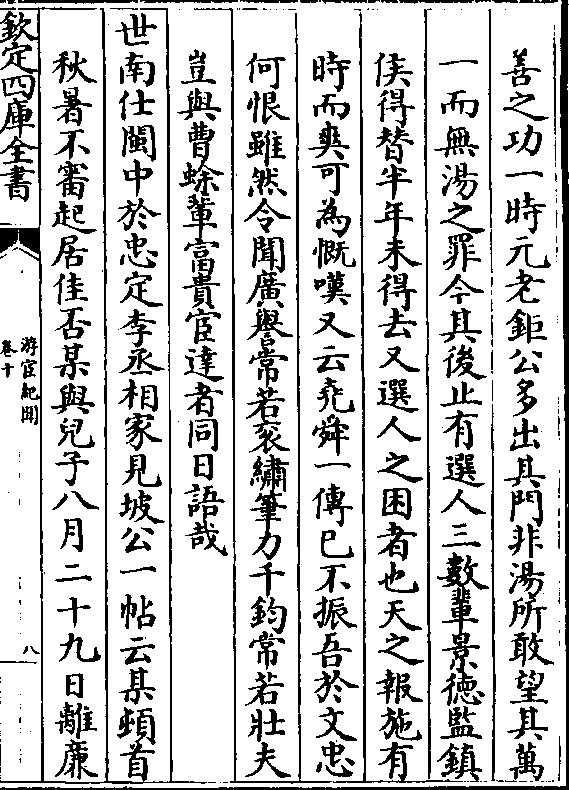 善之功一時元老鉅公多出其門非湯所敢望其萬
一而無湯之罪今其後止有選人三數輩景徳監鎮
俟得替半年未得去又選人之困者也天之報施有
時而爽可為慨嘆又云堯舜一傳已不振吾於文忠
何恨雖然令聞廣譽常若衮繡筆力千鈞常若壯夫
豈與曹蜍軰富貴宦達者同日語哉
世南仕閩中於忠定李丞相家見坡公一帖云某頓首
秋暑不審起居佳否某與兒子八月二十九日離廉
欽定四庫全書
游宦紀聞
卷十
八